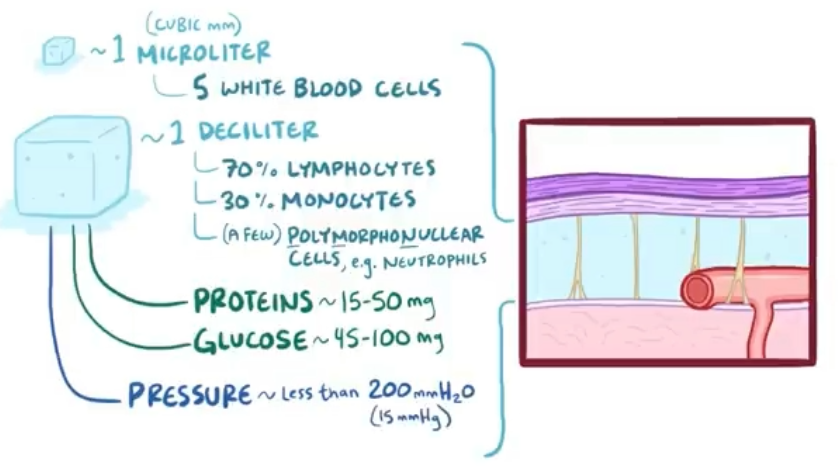 (CUBIC mm)
~1 MICROLITER
5 WHITE BLOOD CELLS
~1 DECILITER
70% LYMPHOCYTES
30% MONOCYTES
(A FEW) POLYMORPHONUCLEAR
CELLS, e.g. NEUTROPHILS
PROTEINS ~ 15-50 mg
GLUCOSE ~ 45-100 mg
PRESSURE ~ Less than 200 mmH₂O
(15 mmHg)